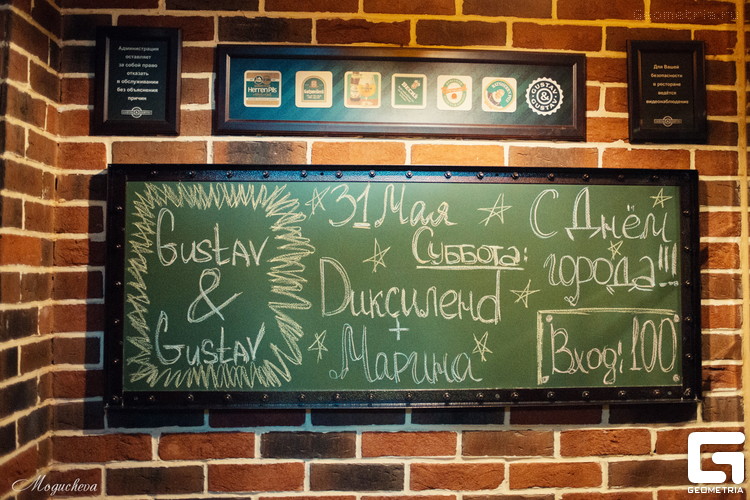 Geometria.ru
Администрация
оставляет
за собой право
отказать
в обслуживании
без объяснения
причин
HerrenPils
GUSTAV
&
GUSTAV
Для Вашей
безопасности
в ресторане
ведётся
видеонаблюдение
Gustav
&
Gustav
31 Мая
Суббота:
Диксиленд
+
Марина
С Днём
города!!!
Вход: 100
Mogucheva
GEOMETRIA